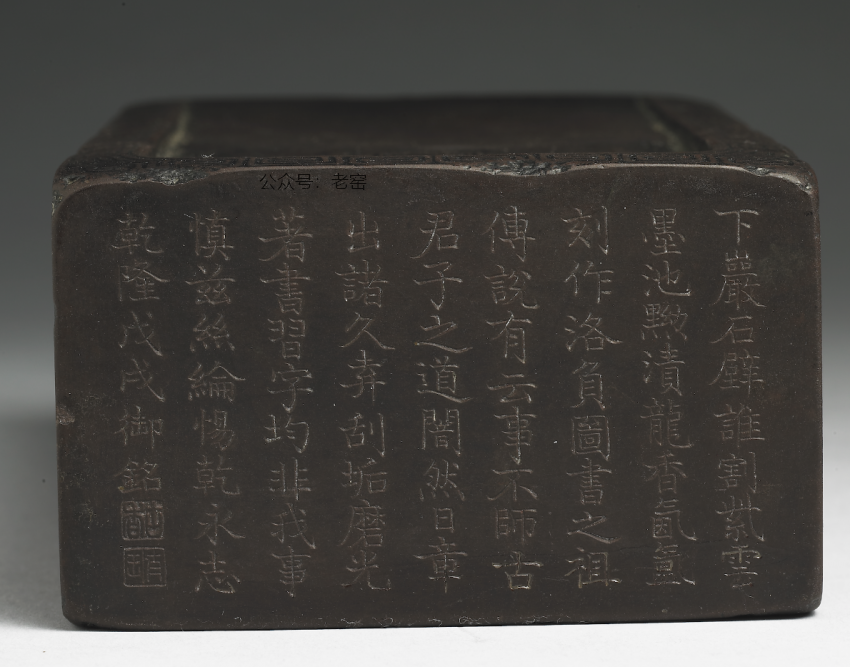 公众号：老窑
下巖石壁誰割紫雲
墨池黝漬龍香氤氳
刻作洛負圖書之祖
傳說有云事不師古
君子之道闇然日章
出諸久弆刮垢磨光
著書習字均非我事
慎茲絲綸惕乾永志
乾隆戊戌御銘